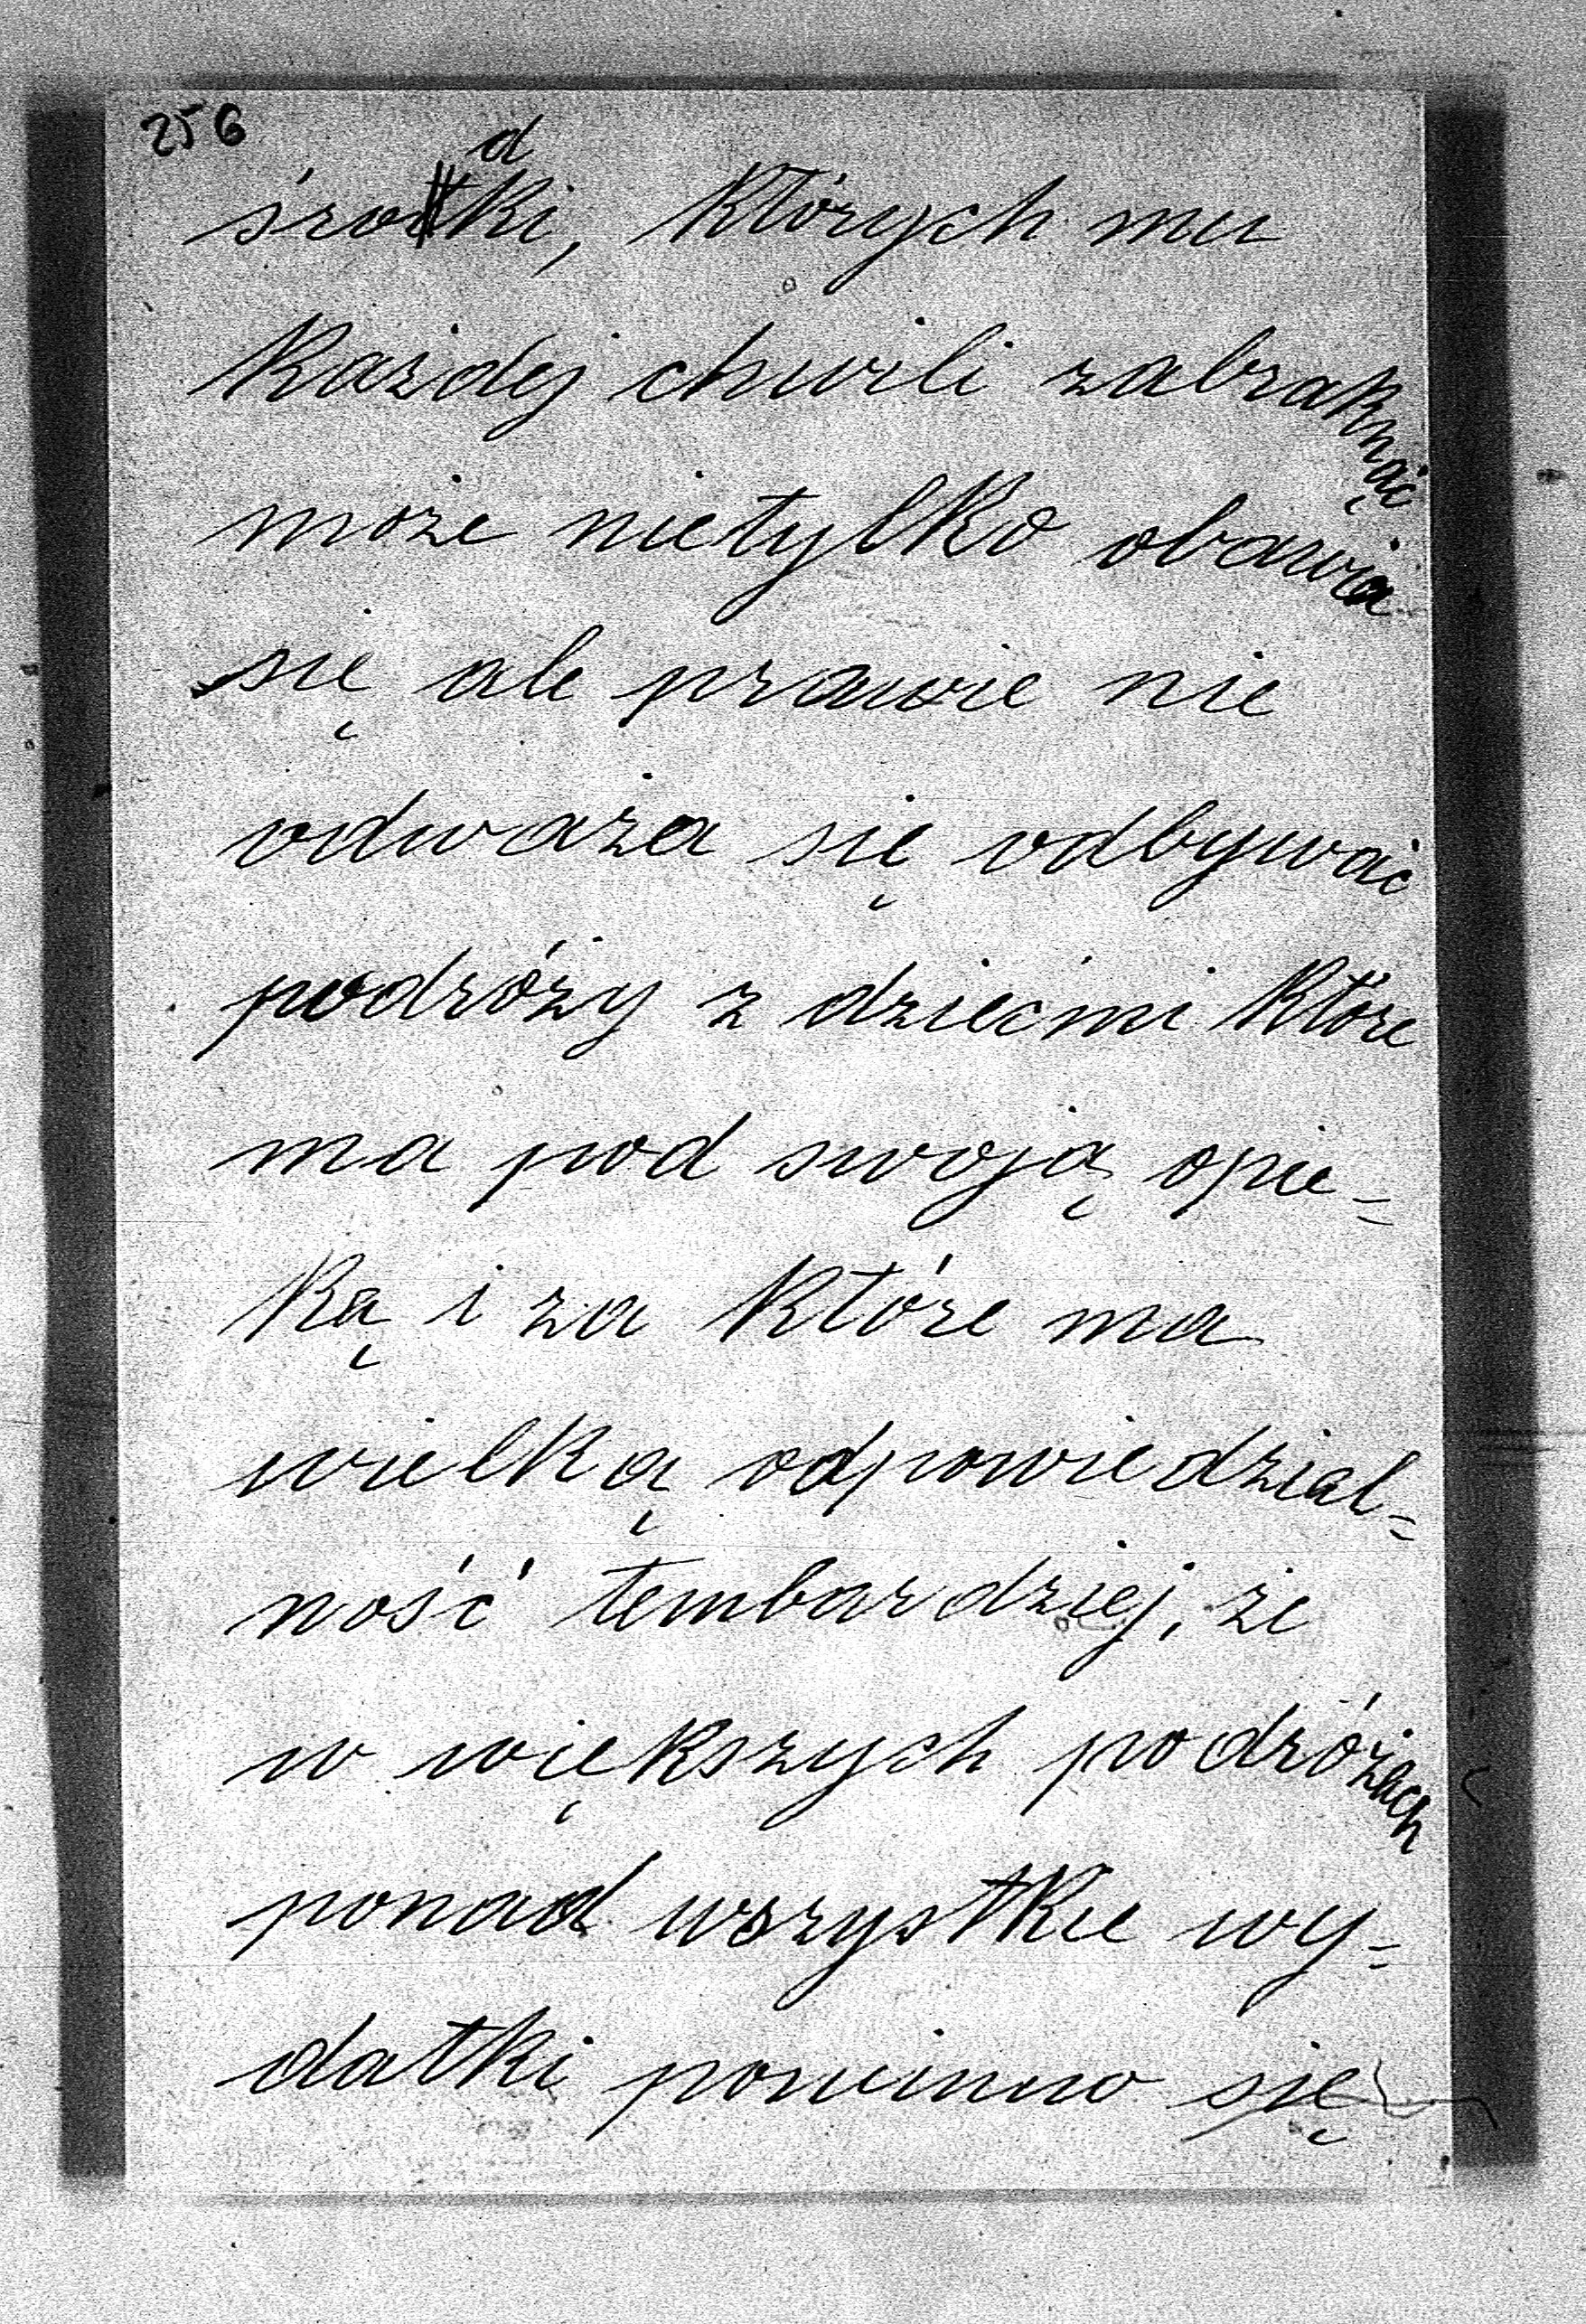 256
środki, których mu
każdej chwili zabraknąć
może nietylko obawia
się ale prawie nie
odważa się odbywać
podróży z dziećmi które
ma pod swoją opie=
ką i za które ma
wielką odpowiedzial=
ność tembardziej, że
w większych podróżach
ponad wszystkie wy=
datki powinno się